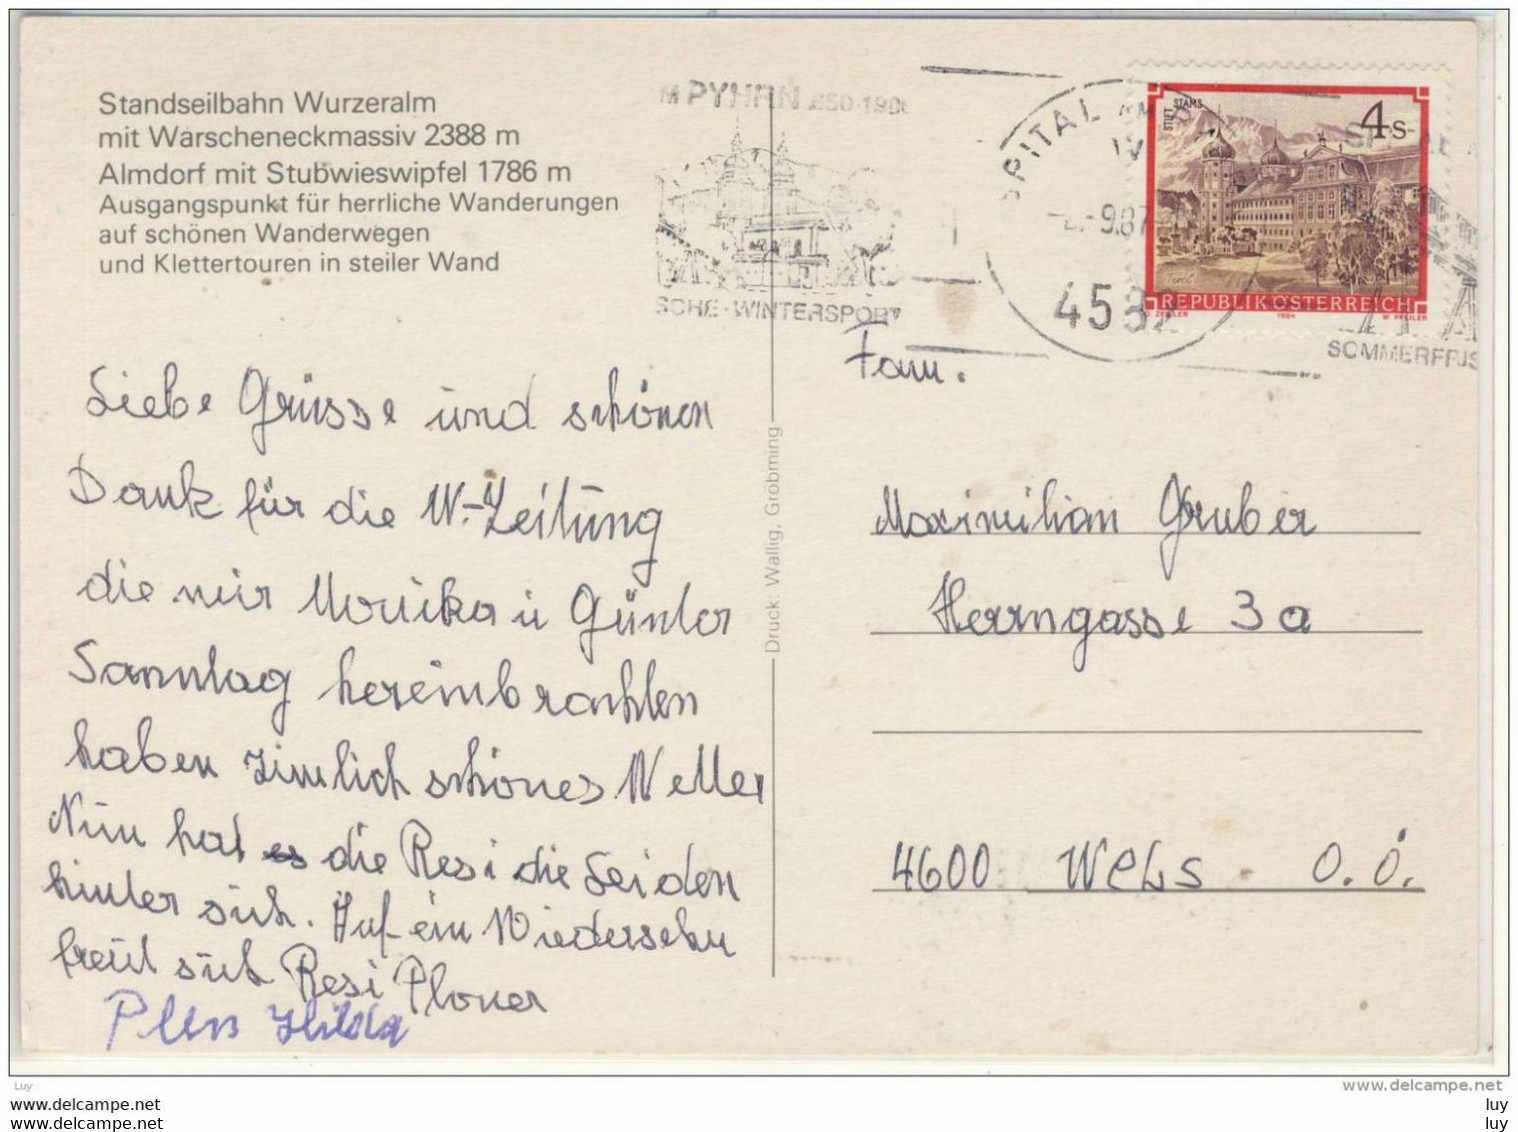 Standseilbahn Wurzeralm
mit Warscheneckmassiv 2388 m
Almdorf mit Stubwieswipfel 1786 m
Ausgangspunkt für herrliche Wanderungen
auf schönen Wanderwegen
und Klettertouren in steiler Wand
M PYHRN
SCHE · WINTERSPORT
SPITAL AM P
9.87
4582
STIFT STAMS
4 S
REPUBLIK ÖSTERREICH
1984
W. PFEILER
SOMMERFRIS
Liebe Grüsse und schönen
Dank für die W.-Zeitung
die wir Monika u Günter
Sanntag hereinbrachten
haben zimlich schönes Wetter
Nun hat es die Resi die Leiden
hinter sich. Auf ein Wiedersehn
freut sich Resi Ploner
Hilda
Druck: Wallig, Gröbming
Fam.
Maximilian Gruber
Herrngasse 3a
4600 Wels O.Ö.
www.delcampe.net
Luy
www.delcampe.net
www.delcampe.net
luy
luy